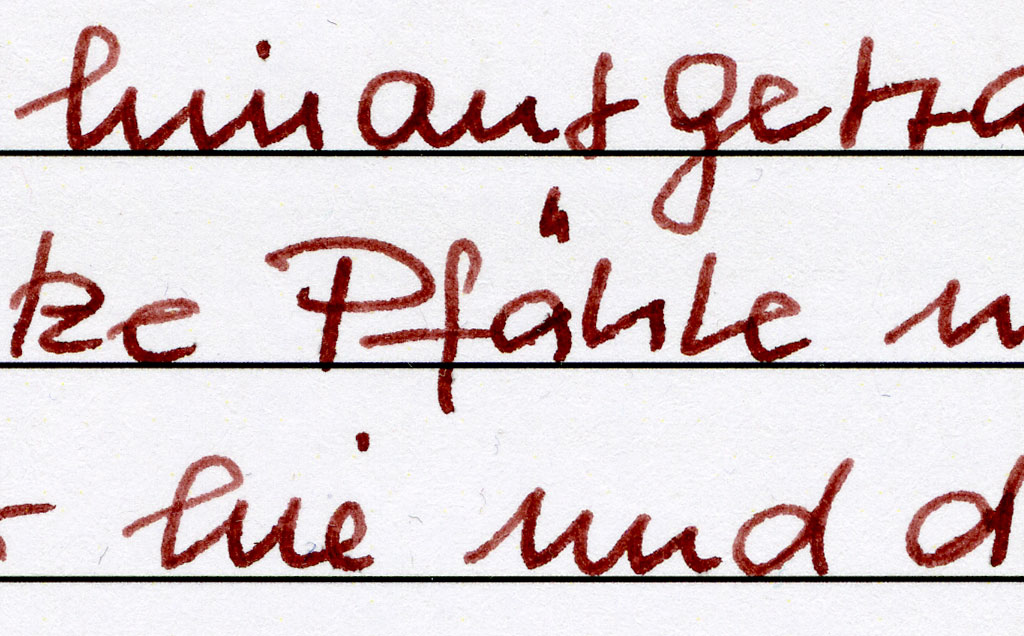 hinausgetra
tze Pfähle u
hie und d